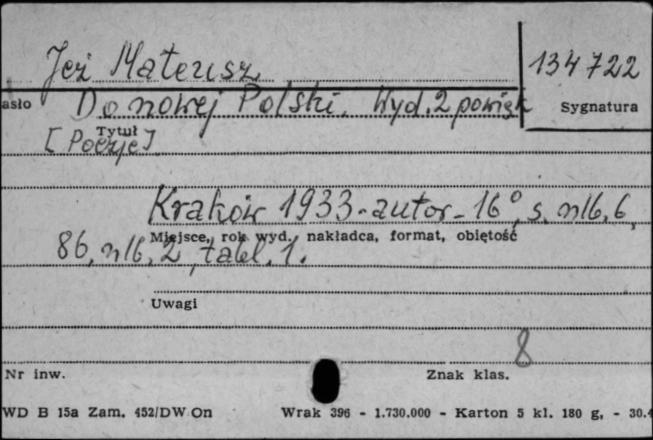 Jeż Mateusz
134722
asło
Do nowej Polski. Wyd. 2 powięk
Sygnatura
Tytuł
[Poezje]
Kraków 1933 - autor - 16°, s. nlb. 6,
Miejsce, rok wyd., nakładca, format, objętość
86, nlb. 2, tabl. 1.
Uwagi
8
Nr inw.
Znak klas.
WD B 15a Zam. 452/DW On Wrak 396 - 1.730.000 - Karton 5 kl. 180 g, - 30.4